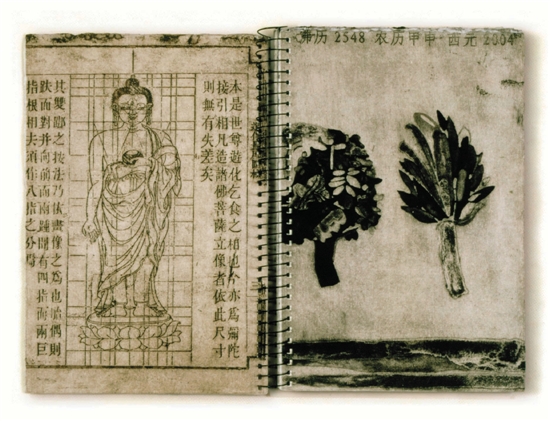 本是世尊遊化乞食之相也今亦為彌陀
接引相凡造諸佛菩薩立像者依此尺寸
則無有失差矣
其雙脚之按法乃依畫像之為也
趺而對并向前而兩踵間有四指而兩巨
指根相去須作八指之分
佛历 2548 农历甲申 西元 2004